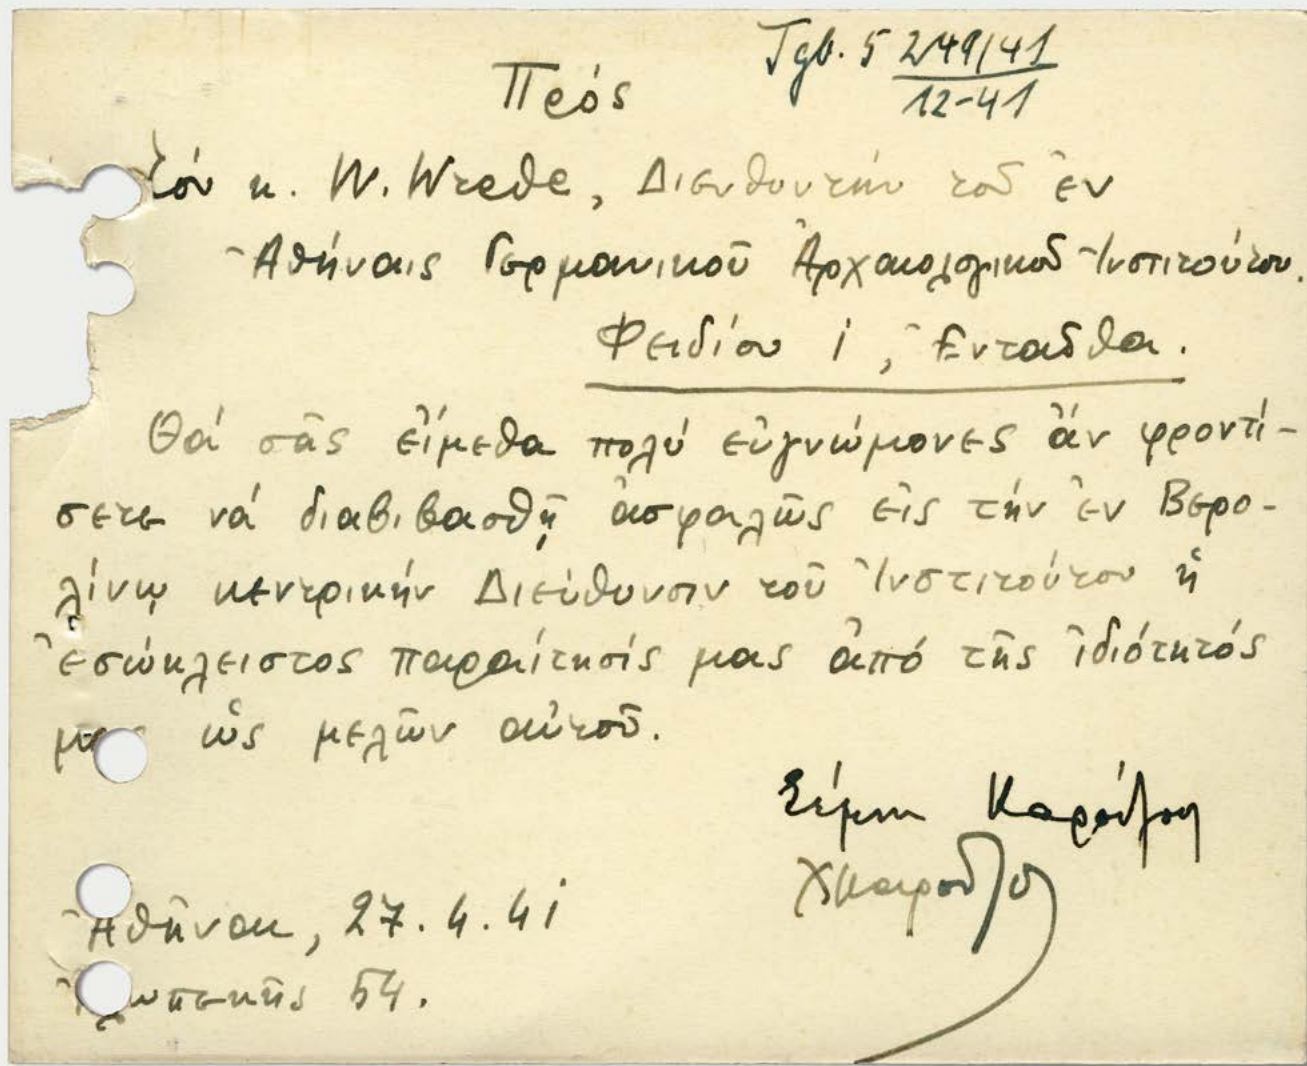 Tgb. 5 249/41
12-41
Πρός
τόν κ. W. Wrede, Διευθυντήν τοῦ ἐν
Ἀθήναις Γερμανικοῦ Ἀρχαιολογικοῦ Ἰνστιτούτου.
Φειδίου 1, Ἐνταῦθα.
Θά σᾶς εἴμεθα πολύ εὐγνώμονες ἄν φροντί-
σετε νά διαβιβασθῇ ἀσφαλῶς εἰς τήν ἐν Βερο-
λίνῳ κεντρικήν Διεύθυνσιν τοῦ Ἰνστιτούτου ἡ
ἐσώκλειστος παραίτησίς μας ἀπό τῆς ἰδιότητός
μας ὡς μελῶν αὐτοῦ.
Σέμνη Καρούζου
ΧΚαρούζος
Ἀθῆναι, 27.4.41
54.